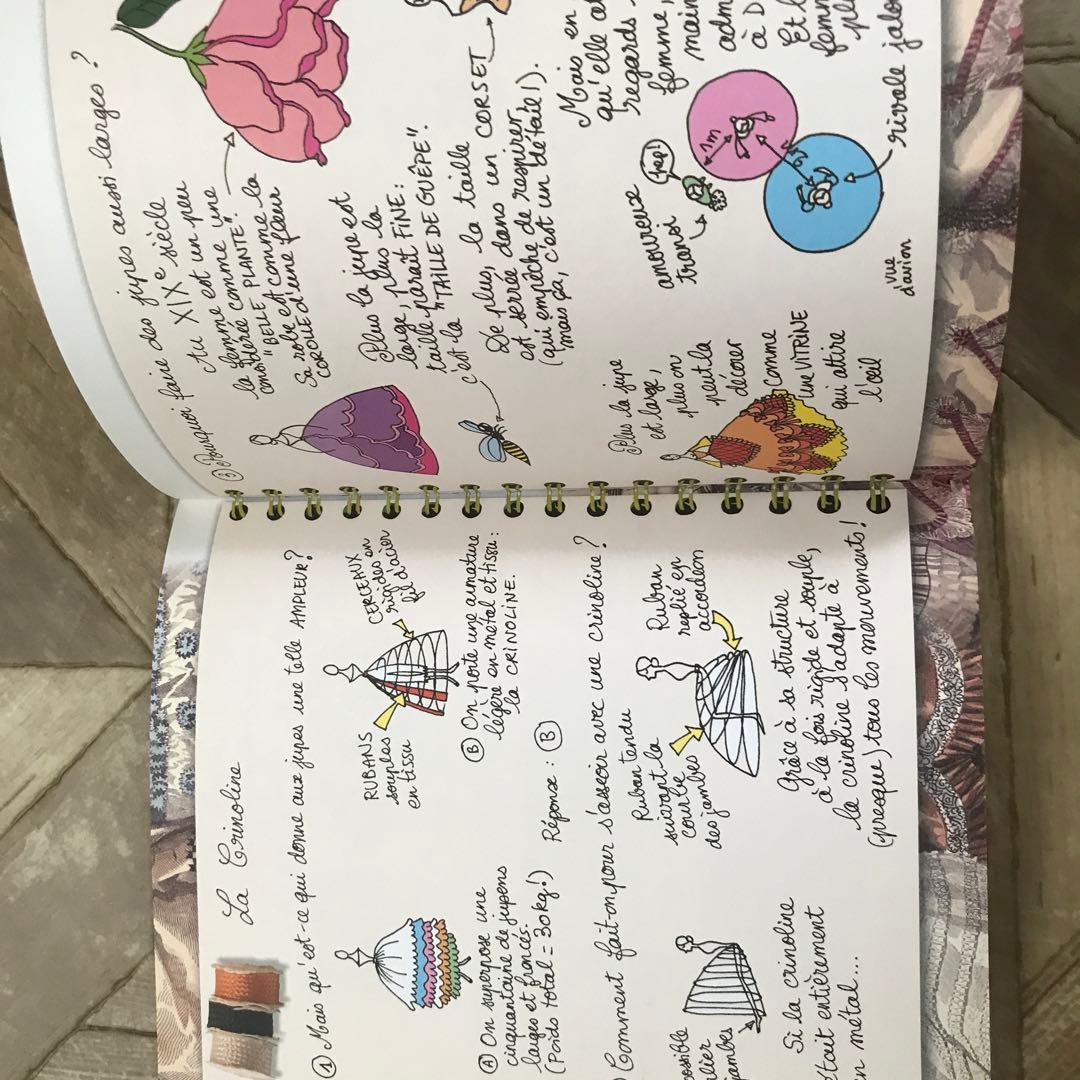 La Crinoline
① Mais qu'est-ce qui donne aux jupes une telle AMPLEUR?
Ⓐ On superpose une
cinquantaine de jupons
larges et froncés.
(Poids total = 30 kg!)
RUBANS
souples
en tissu
CERCEAUX
rigides en
fil d'acier
Ⓑ On porte une armature
légère en métal et tissu:
la CRINOLINE.
Réponse: Ⓑ
Comment fait-on pour s'asseoir avec une crinoline?
jambes
Si la crinoline
était entièrement
en métal...
Ruban tendu
suivant la
courbe
des jambes
Ruban
replié en
accordéon
Grâce à sa structure
à la fois rigide et souple,
la crinoline s'adapte à
(presque) tous les mouvements!
③ Pourquoi faire des jupes aussi larges?
Au XIXe siècle
la femme est un peu
considérée comme une
"BELLE PLANTE".
Sa robe est comme la
COROLLE d'une fleur
Plus la jupe est
large, plus la
taille paraît FINE:
c'est la "TAILLE DE GUÊPE".
De plus, la taille
est serrée dans un CORSET
(qui empêche de respirer,
mais ça, c'est un détail!).
Plus la jupe
est large,
plus on
peut la
décorer
comme
une VITRINE
qui attire
l'œil
Mais en
qu'elle at
regards
femme,
main
adm
à D
Et l
femm
pl
amoureux
transi
hop!
1m
rivale jalou
vue
d'avion